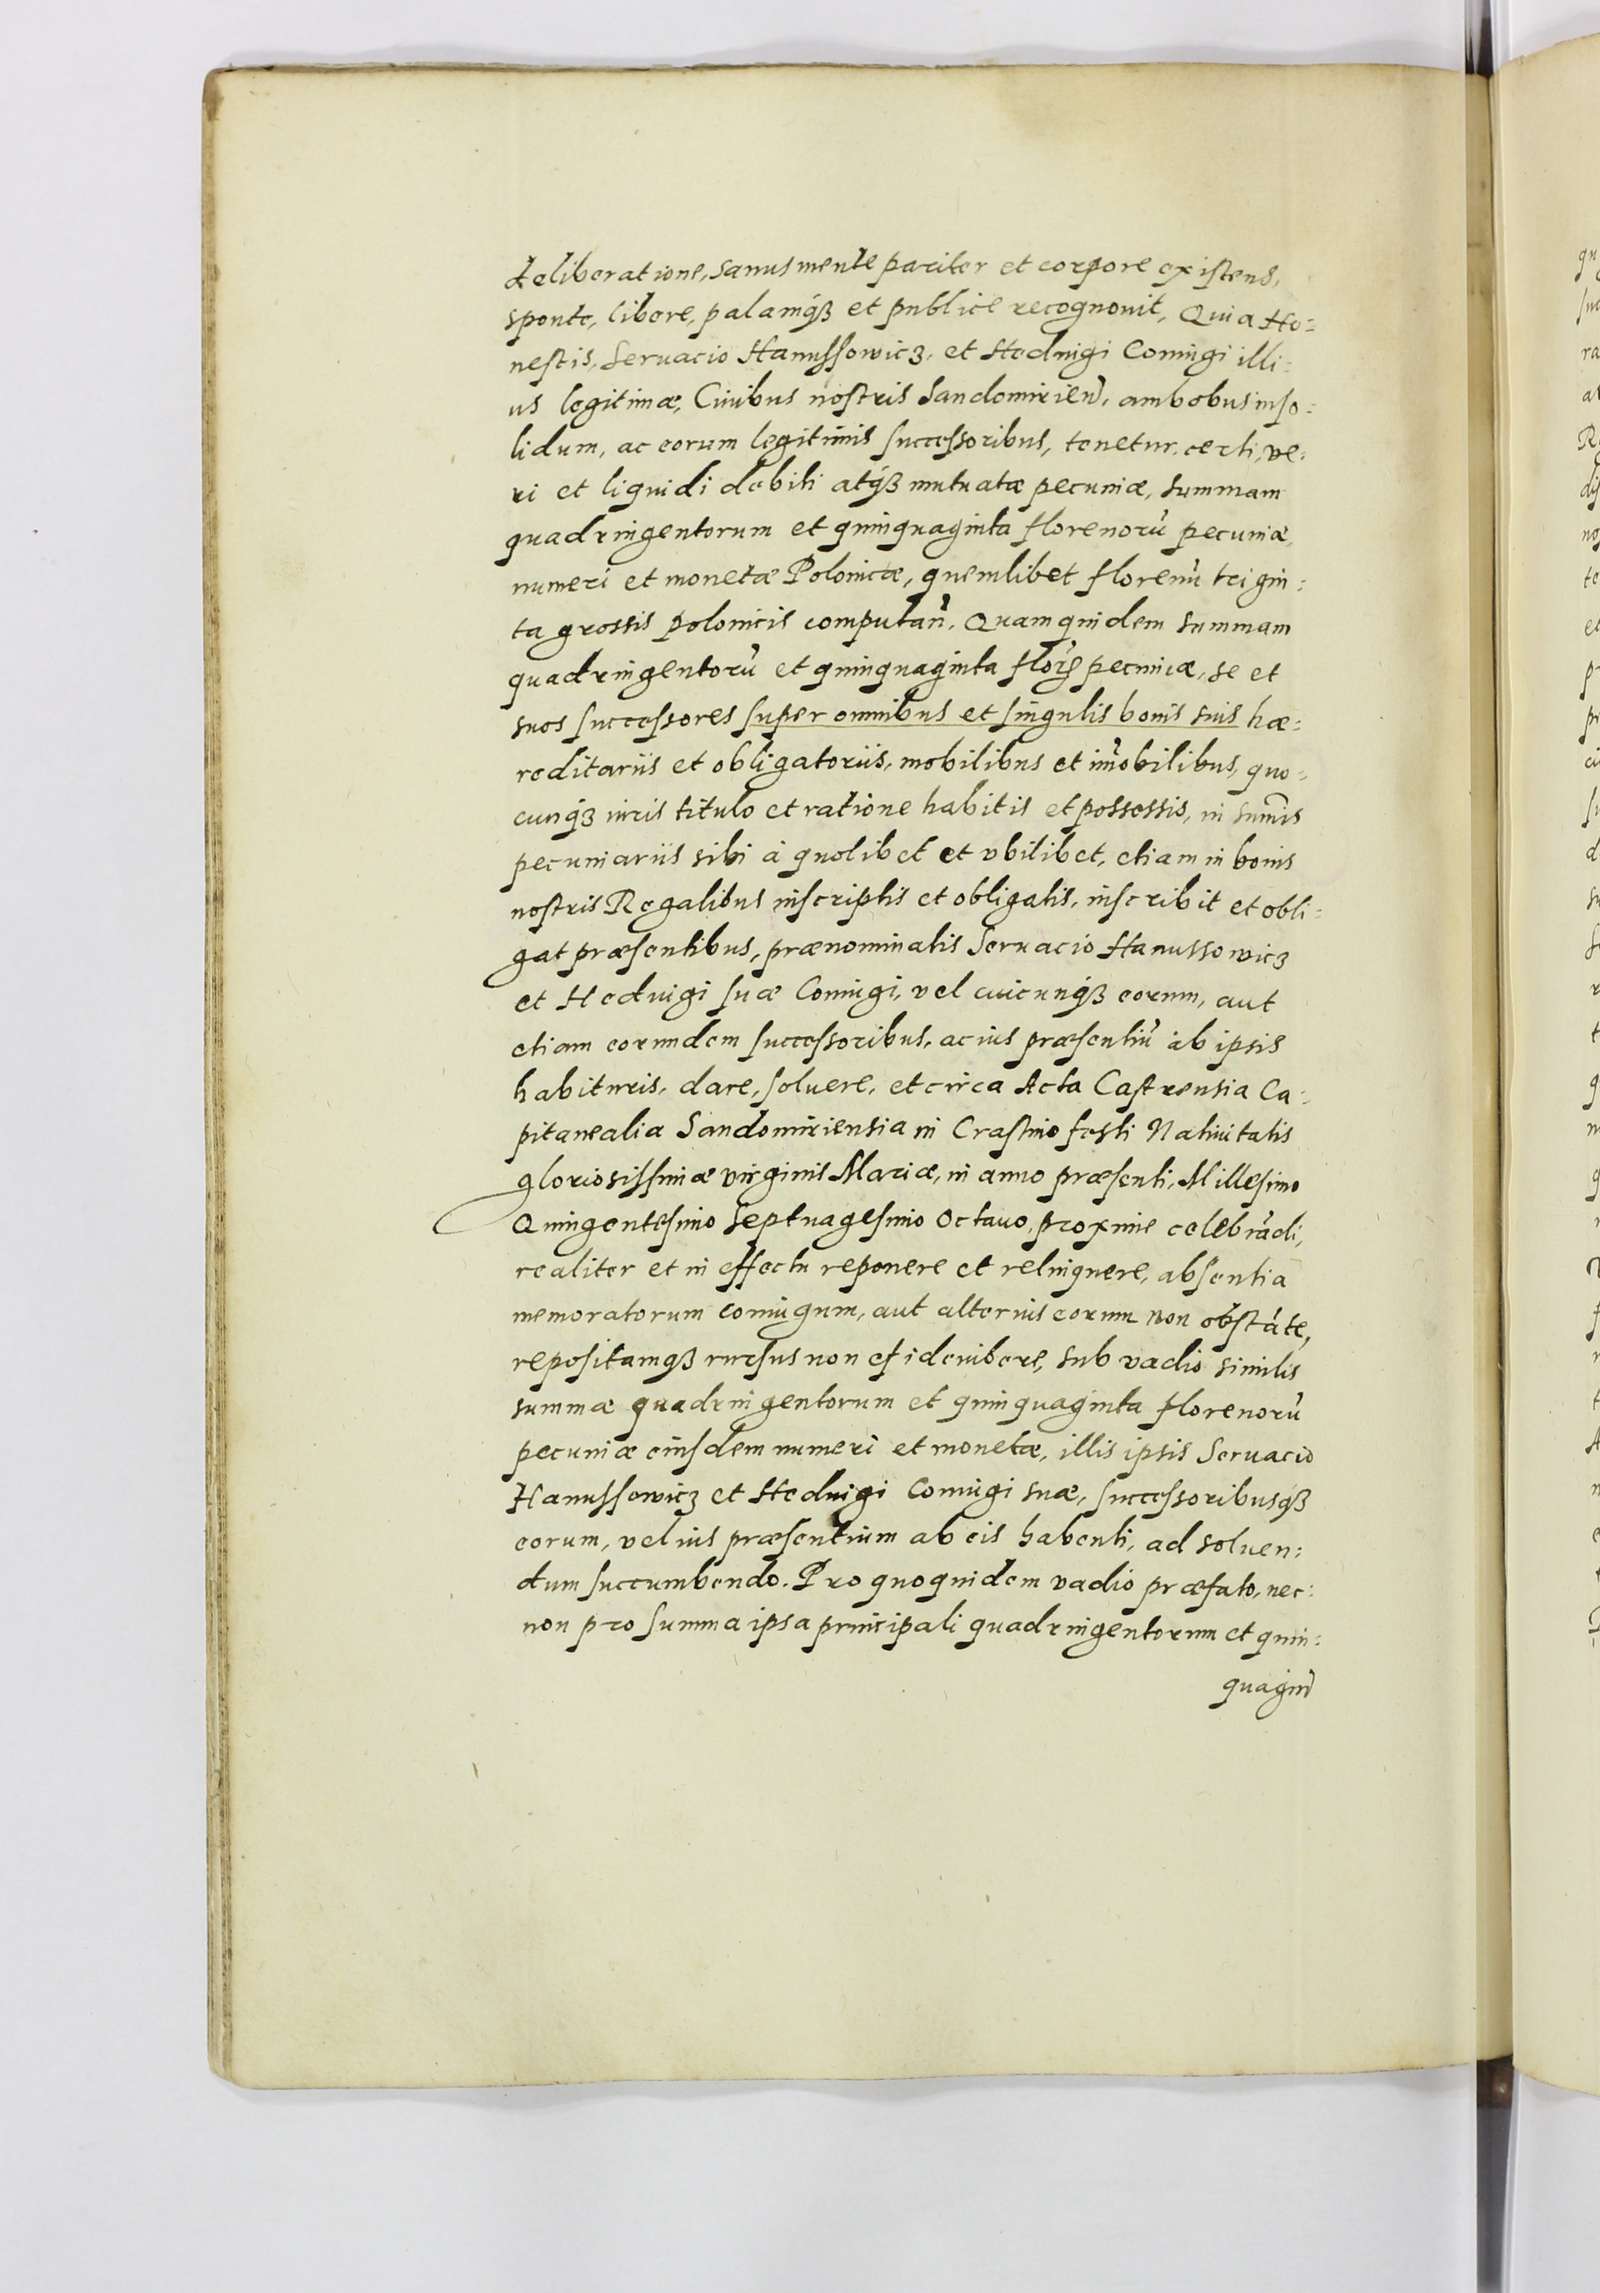 deliberatione, sanus mente pariter et corpore existens,
sponte, libere, palamq́ꝫ et publice recognouit, Quia Ho:
nestis, Seruacio Hanussowicz, et Heduigi Coniugi illi:
us legitimæ, Ciuibus nostris Sandomirien̄, ambobus inso:
lidum, ac eorum legitimis successoribus, tenetur, certi, ve:
ri et liquidi debiti atq́ꝫ mutuatæ pecuniæ, summam
quadringentorum et quinquaginta florenorū pecuniæ,
numeri et monetæ Polonicæ, quemlibet florenū trigin:
ta grossis polonicis computan̄. Quam quidem summam
quadringentorū et quinquaginta flor̄ pecuniæ, se et
suos successores super omnibus et singulis bonis suis hæ:
reditariis et obligatoriis, mobilibus et im̄obilibus, quo:
cunq́ꝫ iuris titulo et ratione habitis et possessis, in sum̄is
pecuniariis sibi à quolibet et vbilibet, etiam in bonis
nostris Regalibus inscriptis et obligatis, inscribit et obli:
gat præsentibus, prænominatis Seruacio Hanussowicz
et Heduigi suæ Coniugi, vel cuicunq́ꝫ eorum, aut
etiam eorundem successoribus, ac ius præsentiū ab ipsis
habituris, dare, soluere, et circa Acta Castrensia Ca:
pitanealia Sandomiriensia in Crastino festi Natiuitatis
gloriosissimæ virginis Mariæ, in anno præsenti, Millesimo
Quingentesimo Septuagesimo Octauo, proxime celebrādi,
realiter et in effectu reponere et relinquere, absentia
memoratorum coniugum, aut alterius eorum non obstāte,
repositamq́ꝫ rursus non ef idenibere, sub vadio similis
summæ quadringentorum et quinquaginta florenorū
pecuniæ eiusdem numeri et monetæ, illis ipsis Seruacio
Hanussowicz et Heduigi Coniugi suæ, successoribusq́ꝫ
eorum, vel ius præsentium ab eis habenti, ad soluen:
dum succumbendo. Pro quoquidem vadio præfato, nec:
non pro summa ipsa principali quadringentorum et quin:
quagin̄